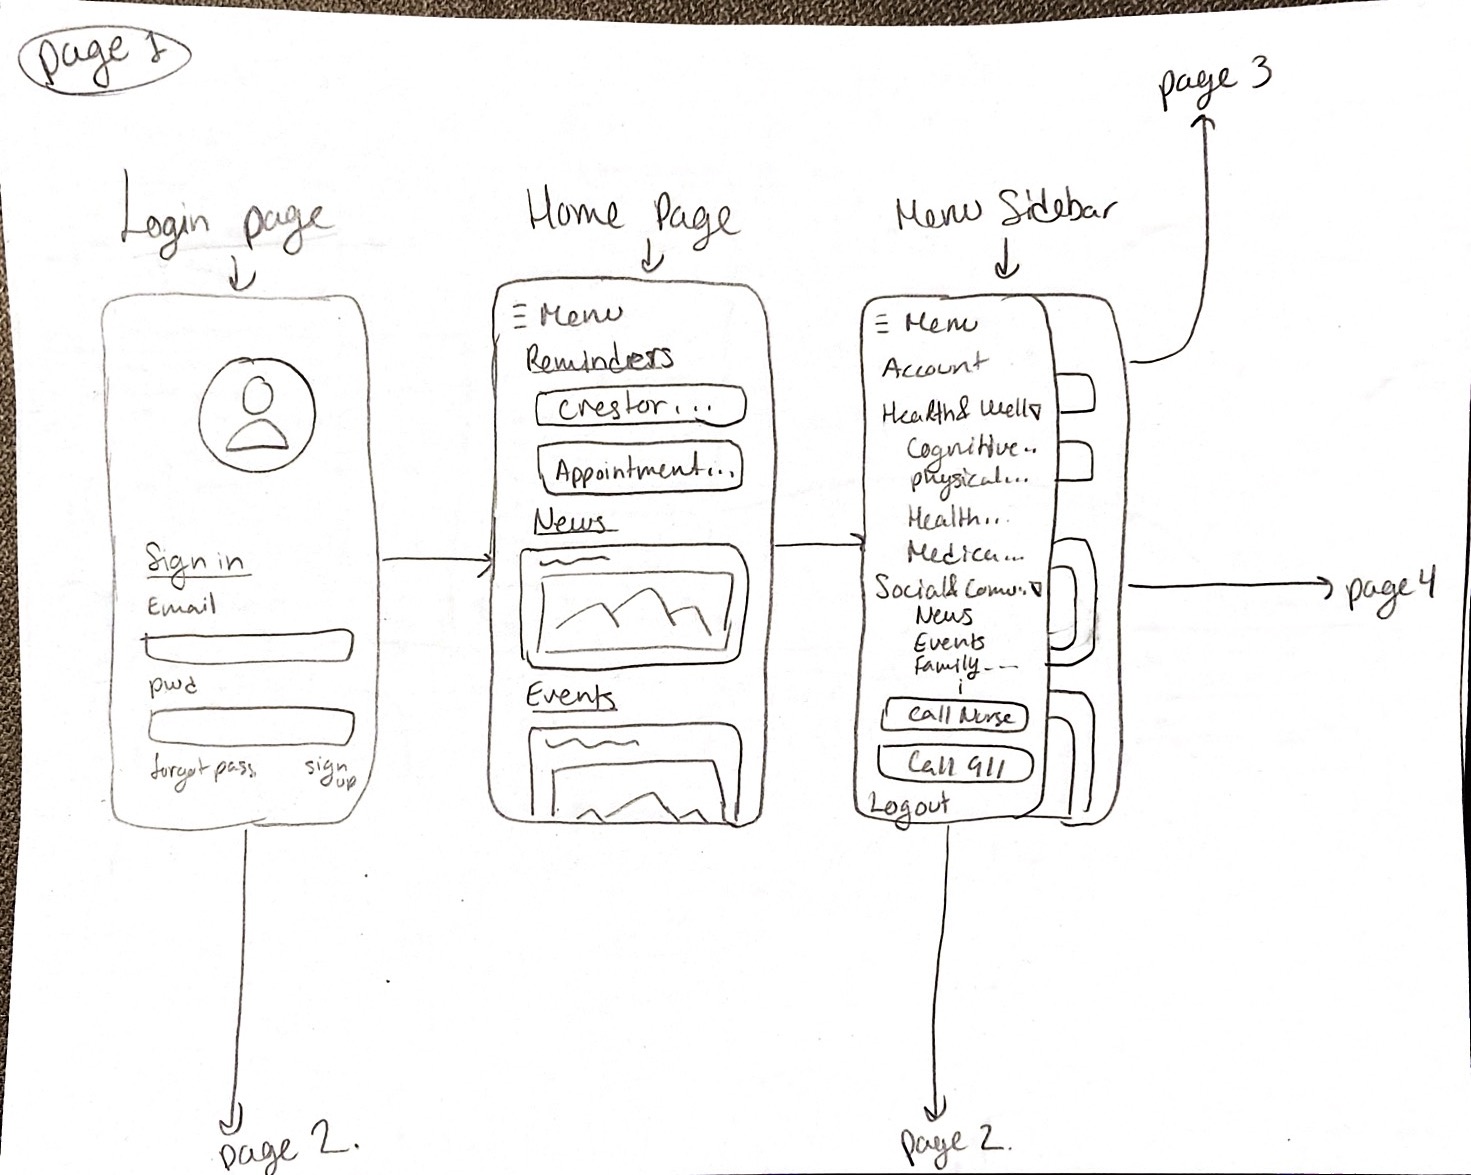 page 1
page 3
Login page
Home Page
Menu Sidebar
Sign in
Email
pwd
forgot pass
sign up
Menu
Reminders
Crestor...
Appointment...
News
Events
Menu
Account
Health & Well
Cognitive..
physical...
Health...
Medica...
Social & Comu..
News
Events
Family---
Call Nurse
Call 911
Logout
page 4
page 2.
page 2.